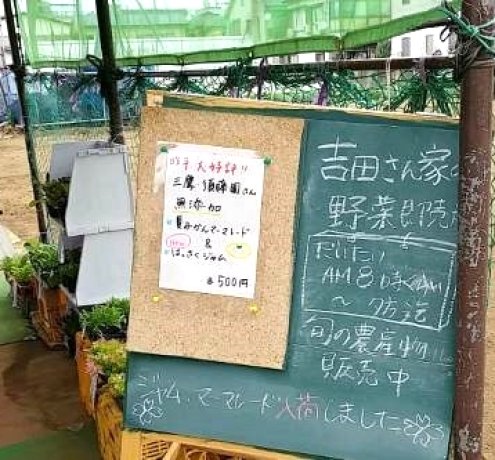 昨年大好評!!
三鷹 須藤園さん
無添加
夏みかんマーマレード
&
はっさくジャム
各500円
吉田さん家の
野菜即売
だいたい
AM8時
〜夕方迄
旬の農産物!!
販売中
ジャム、マーマレード入荷しました